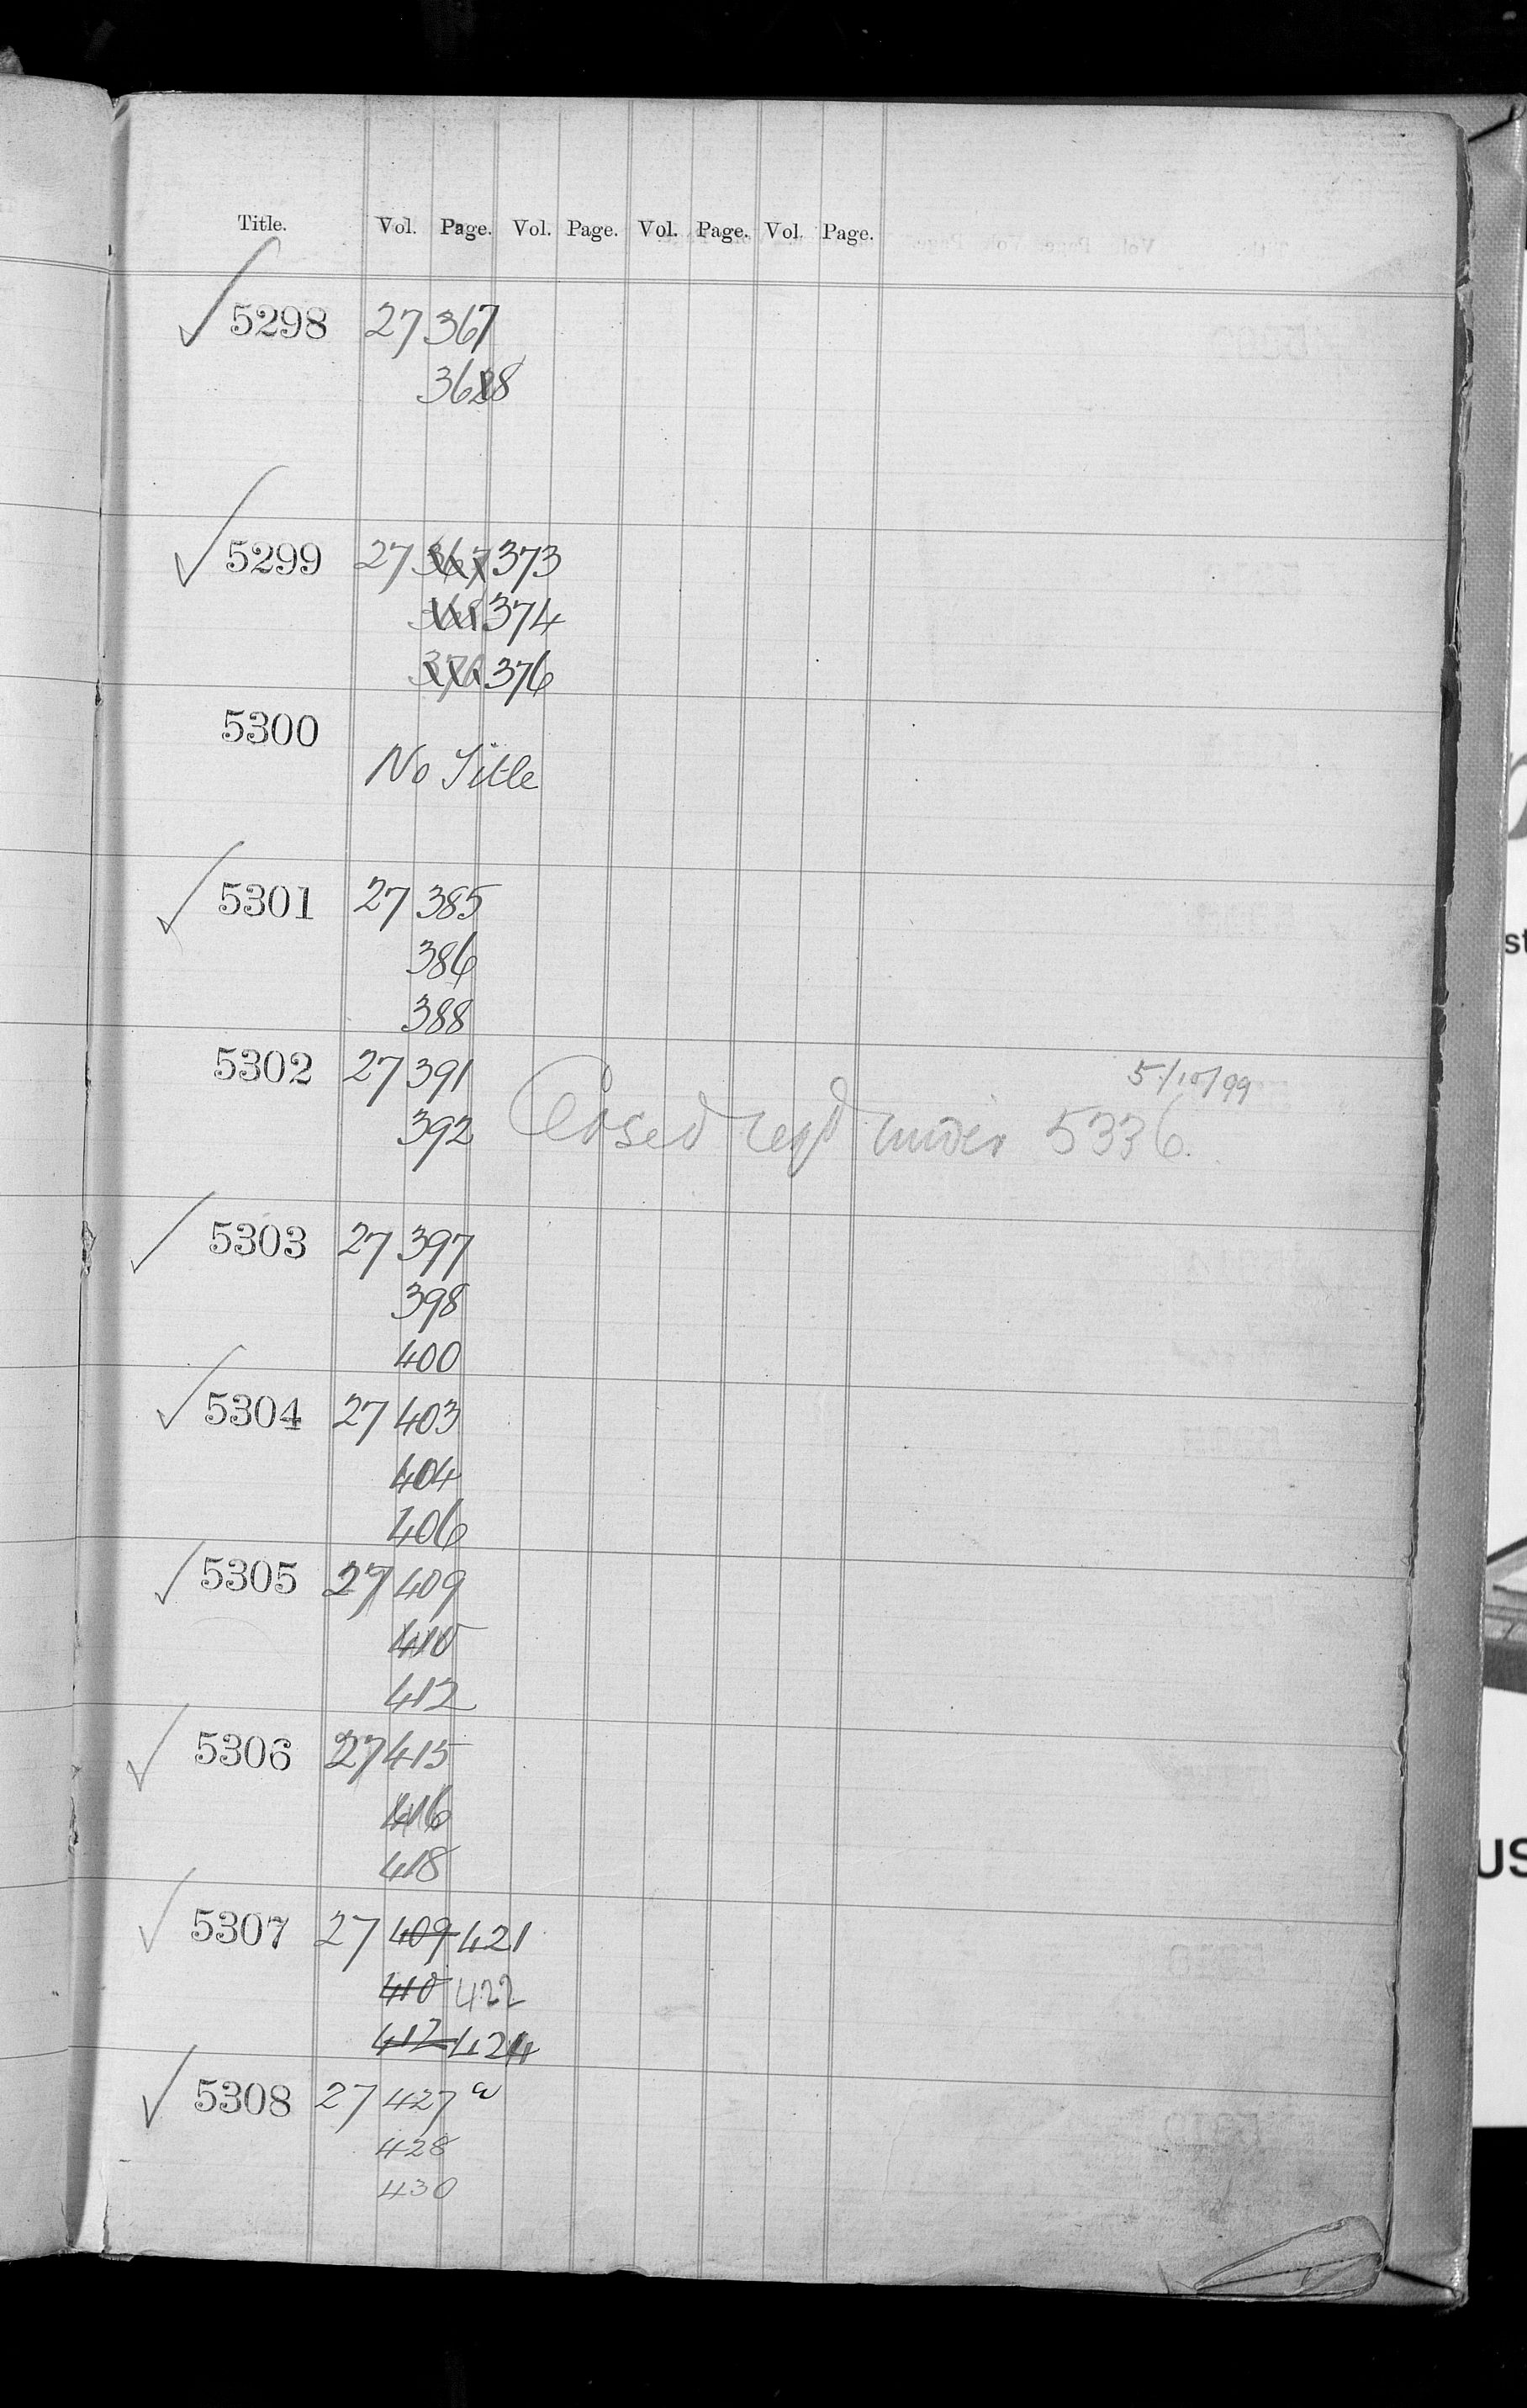 Title. Vol. Page. Vol. Page. Vol. Page. Vol. Page.
✓ 5298 27 367
368
✓ 5299 27 367 373
368 374
370 376
5300
No Title
✓ 5301 27 385
386
388
5302 27 391 5/10/99
392 Closed regd under 5336.
✓ 5303 27 397
398
400
✓ 5304 27 403
404
406
✓ 5305 27 409
410
412
✓ 5306 27 415
416
418
✓ 5307 27 409 421
410 422
412 424
✓ 5308 27 427
428
430
st
US